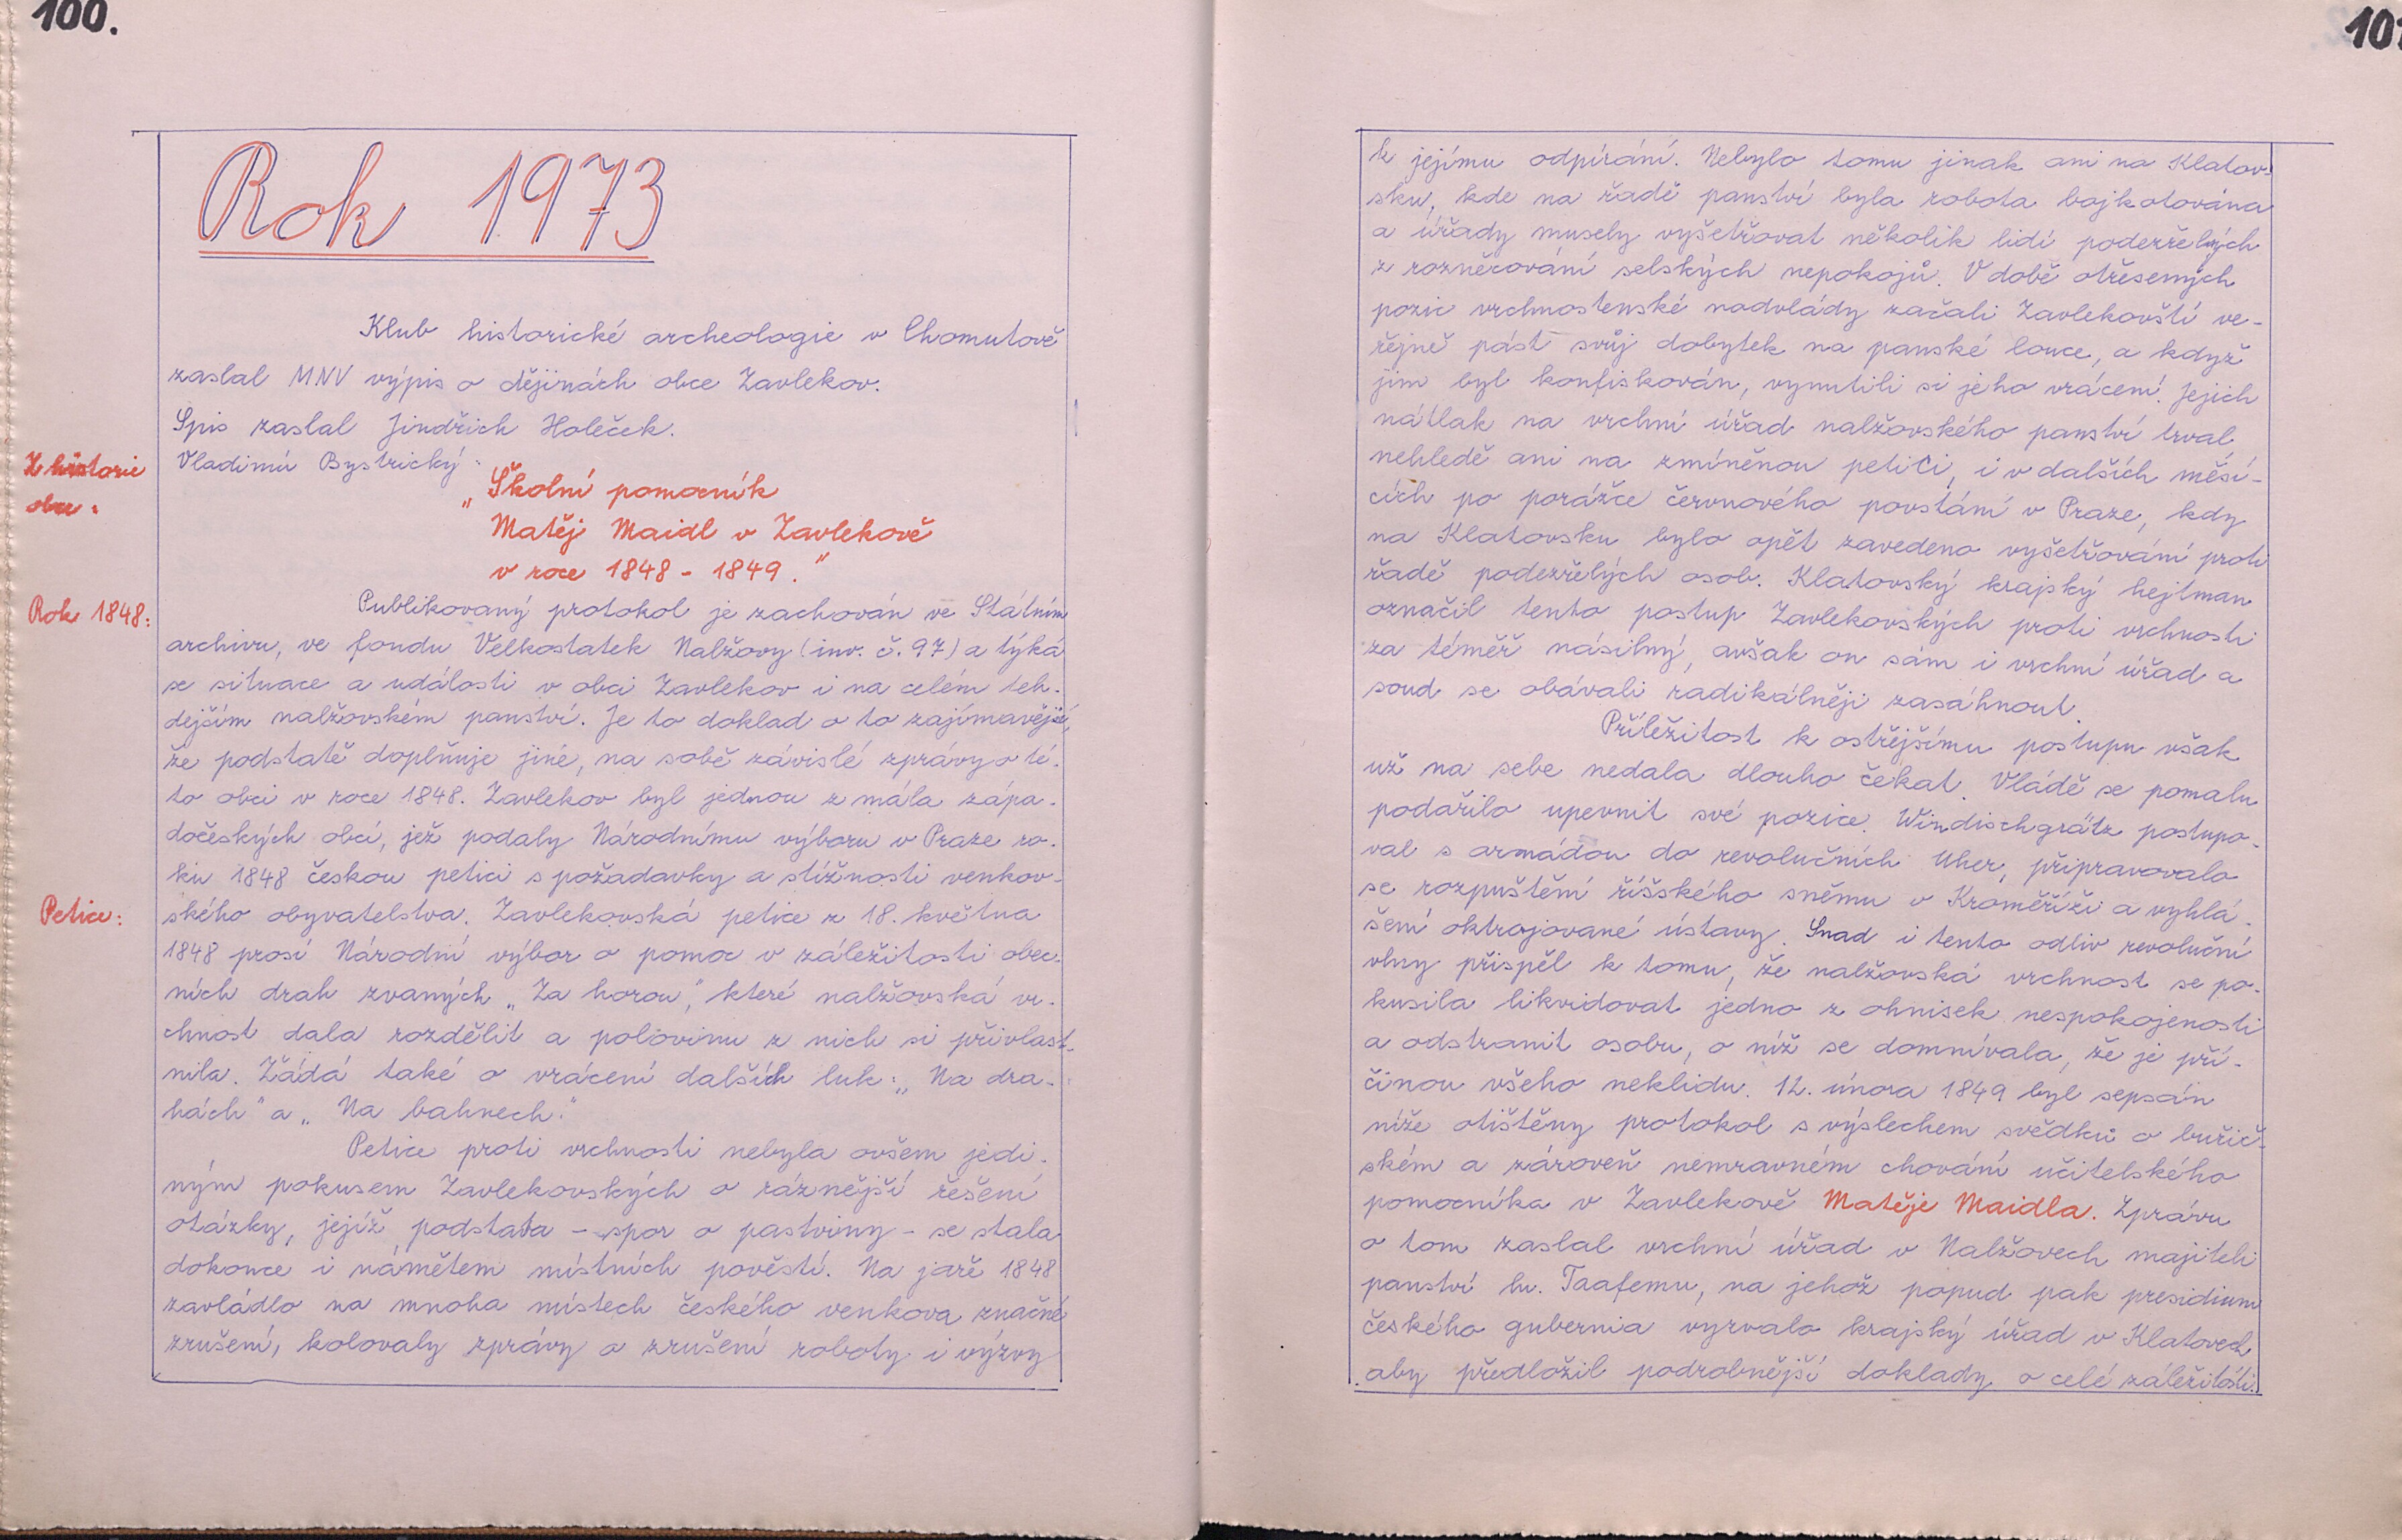 100.
Rok 1973
Klub historické archeologie v Chomutově
zaslal MNV výpis o dějinách obce Zavlekov.
Spis zaslal Jindřich Holeček.
Z historie
obce:
Vladimír Bystrický:
„Školní pomocník
Matěj Maidl v Zavlekově
v roce 1848 - 1849."
Rok 1848:
Publikovaný protokol je zachován ve Státním
archivu, ve fondu Velkostatek Nalžovy (inv. č. 97) a týká
se situace a události v obci Zavlekov i na celém teh-
dejším nalžovském panství. Je to doklad o to zajímavější,
že podstatě doplňuje jiné, na sobě závislé zprávy o té-
to obci v roce 1848. Zavlekov byl jednou z mála zápa-
dočeských obcí, jež podaly Národnímu výboru v Praze ro-
ku 1848 českou petici s požadavky a stížnosti venkov-
Petice:
ského obyvatelstva. Zavlekovská petice z 18. května
1848 prosí Národní výbor o pomoc v záležitosti obec-
ních drah zvaných „Za horou", které nalžovská vr-
chnost dala rozdělit a polovinu z nich si přivlast-
nila. Žádá také o vrácení dalších luk: „Na dra-
hách" a „Na bahnech."
Petice proti vrchnosti nebyla ovšem jedi-
ným pokusem Zavlekovských o ráznější řešení
otázky, jejíž podstata - spor o pastviny - se stala
dokonce i námětem místních pověstí. Na jaře 1848
zavládlo na mnoha místech českého venkova značné
zrušení, kolovaly zprávy o zrušení roboty i výzvy
101
k jejímu odpírání. Nebylo tomu jinak ani na Klatov-
sku, kde na řadě panství byla robota bojkotována
a úřady musely vyšetřovat několik lidí podezřelých
z rozněcování selských nepokojů. V době otřesených
pozic vrchnostenské nadvlády začali Zavlekovští ve-
řejně pást svůj dobytek na panské louce, a když
jim byl konfiskován, vynutili si jeho vrácení. Jejich
nátlak na vrchní úřad nalžovského panství trval
nehledě ani na zmíněnou petici, i v dalších měsí-
cích po porážce červnového povstání v Praze, kdy
na Klatovsku bylo opět zavedeno vyšetřování proti
řadě podezřelých osob. Klatovský krajský hejtman
označil tento postup Zavlekovských proti vrchnosti
za téměř násilný, avšak on sám i vrchní úřad a
soud se obávali radikálněji zasáhnout.
Příležitost k ostřejšímu postupu však
už na sebe nedala dlouho čekat. Vládě se pomalu
podařilo upevnit své pozice. Windischgrätz postupo-
val s armádou do revolučních Uher, připravovalo
se rozpuštění říšského sněmu v Kroměříži a vyhlá-
šení oktrojované ústavy. Snad i tento odliv revoluční
vlny přispěl k tomu, že nalžovská vrchnost se po-
kusila likvidovat jedno z ohnisek nespokojenosti
a odstranit osobu, o níž se domnívala, že je pří-
činou všeho neklidu. 12. února 1849 byl sepsán
níže otištěny protokol s výslechem svědků o buřič-
ském a zároveň nemravném chování učitelského
pomocníka v Zavlekově Matěje Maidla. Zprávu
o tom zaslal vrchní úřad v Nalžovech majiteli
panství hr. Taafemu, na jehož popud pak presidium
českého gubernia vyzvalo krajský úřad v Klatovech
aby předložil podrobnější doklady o celé záležitosti.